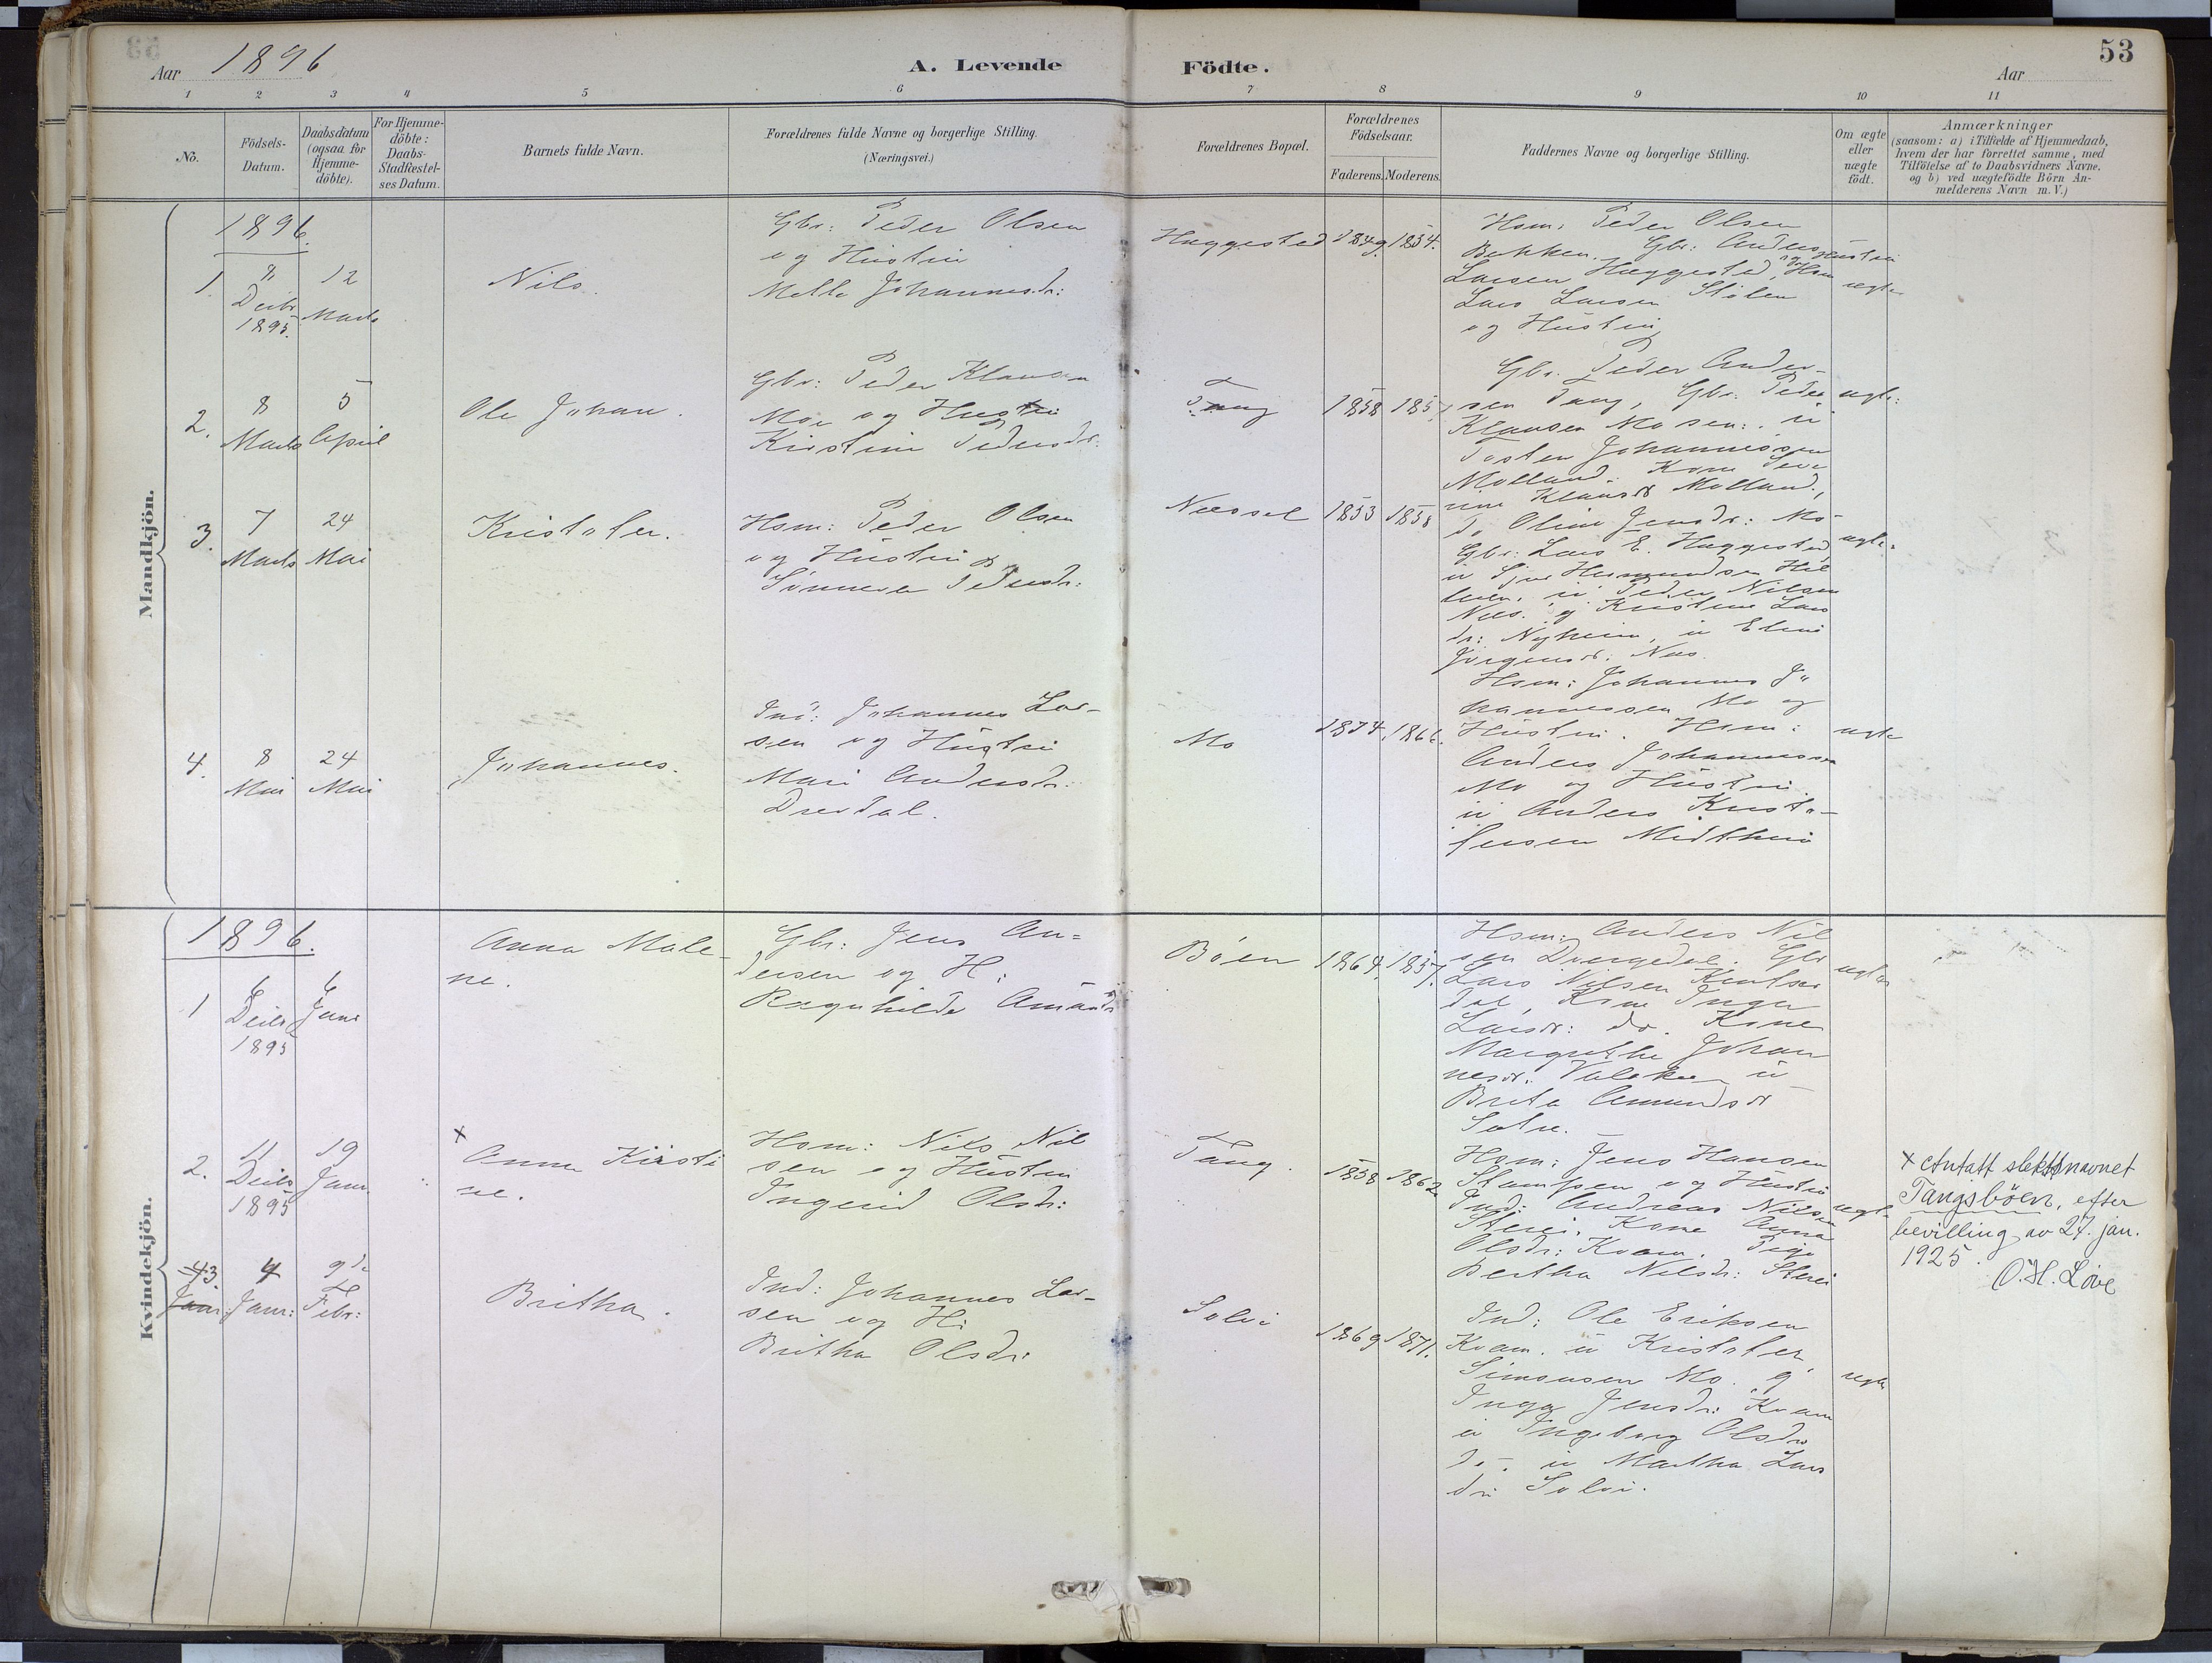 53
Aar 1896
A. Levende Födte.
Aar
1 2 3 4 5 6 7 8 9 10 11
No.
Födsels-
Datum.
Daabsdatum
(ogsaa for
Hjemme-
döbte).
For Hjemme-
döbte:
Daabs-
Stadfæstel-
ses Datum.
Barnets fulde Navn.
Forældrenes fulde Navne og borgerlige Stilling.
(Næringsvei.)
Forældrenes Bopæl.
Forældrenes
Födselsaar.
Faderens. Moderens.
Faddernes Navne og borgerlige Stilling.
Om ægte
eller
uægte
födt.
Anmærkninger
(saasom: a) i Tilfælde af Hjemmedaab,
hvem der har forrettet samme, med
Tilföielse af to Daabsvidners Navne.
og b) ved uægtefödte Börn An-
melderens Navn m. V.)
Mandkjön.
1896.
1
Decbr
1895.
12
Marts
Nils.
Gbr: Peder Olsen
og Hustru
Johannesdr:
Haggested
1849. 1854.
Hsm: Peder Olsen
Bakken. Gbr: Anders
Larsen Haggested,
Lars Larsen Stølen
og Hustru
ægte
2.
8
Marts
5
April
Ole Johan.
Gbr: Peder Klausen
Moe og Hustru
Kirstine Pedersdr:
Tang
1858
Gbr. Peder Ander-
sen Tang, Gbr. Peder
Klausen Mo
Tosten Johannessen
Molland. Kone
Klausdr Molland.,
do Oline Jensdr: Mo
ægte:
3.
7
Marts
24
Mai
Kristofer.
Hsm: Peder Olsen
og Hustru
Sønneva Pedersdr:
Næssel
1853 1858
Gbr: Lars E. Haggested
Peder Nilsen
Næs. g Kristine Lars
dr: Nyheim, u Eline
Jørgensdr. Næs.
ægte.
4.
8
Mai
24
Mai
Johannes.
Ind: Johannes Lar-
sen og Hustru
Mari Andersdr:
Drevdal.
Mo
1874. 1866.
Hsm: Johannes Jo
hannessen Mo og
Hustru. Hsm:
Anders Johannessen
Mo og Hustru.
u Anders Kristo-
fersen Midthun
ægte
Kvindekjön.
1896.
1
6
Decbr
1895
6
Janr
Anna Male-
ne.
Gbr: Jens An=
dersen og H:
Ragnhilde
Böen
1864. 1857.
Hsm: Anders Nil
sen Dvergedal. Gbr
Lars Nilsen
dal, Kone Inger
Larsdr: do. Kone
Margrethe Johan
nesdr. u
Brita Amundsdr
Sætre.
ægte
2.
11
Decbr
1895
19
Janr.
x
Anna Kirsti
ne.
Hsm: Nils Nil
sen og Hustru
Ingerid Olsdr:
Tang.
1858 1862
Hsm: Jens Hansen
og Hustru
Ind: Andreas Nilsen
Sterri. Kone Anna
Olsdr: Kvam. Pige
Bertha Nilsdr: Sterri
ægte
x Antatt slektsnavnet
Tangsböen, efter
bevilling av 27. jan.
1925.
O. H. Løve
3.
Janr:
4
Janr:
9de
Febr:
Britha.
Ind: Johannes Lar-
sen og H:
Britha Olsdr:
Solvi
1869 1871.
Ind: Ole Eriksen
Kvam. u Kristofer
Simonsen Mo. g
Inga Jensdr: Kvam
u Ingeborg Olsdr
do-. u Martha Lars
dr: Solvi.
ægte